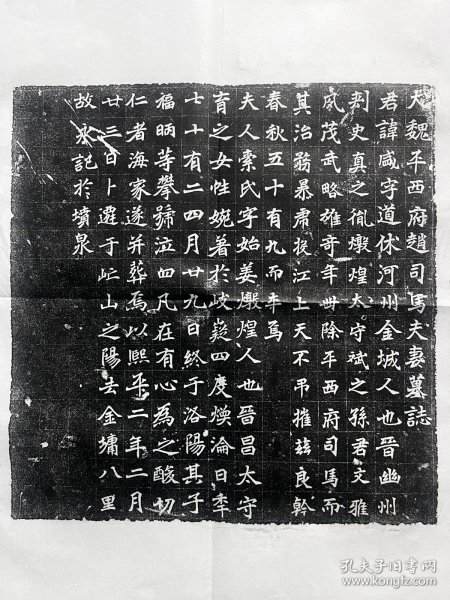 大魏平西府趙司馬夫妻墓誌
君諱咸字道休河州金城人也晉幽州
刺史真之胤燉煌太守斌之孫君文雅
風茂武略雄奇年卅除平西府司馬而
其治務暴肅江上天不弔摧茲良幹
春秋五十有九而卒焉
夫人索氏字始姜燉煌人也晉昌太守
育之女性婉著於岐嶷四度煥淪日年
七十有二四月廿九日終于洛陽其子
福昞等攀號泣血凡在有心為之酸切
仁者海家遂并葬焉以熙平二年二月
廿三日卜遷于芒山之陽去金墉八里
故求記於墳泉
孔夫子旧书网
www.kongfz.com